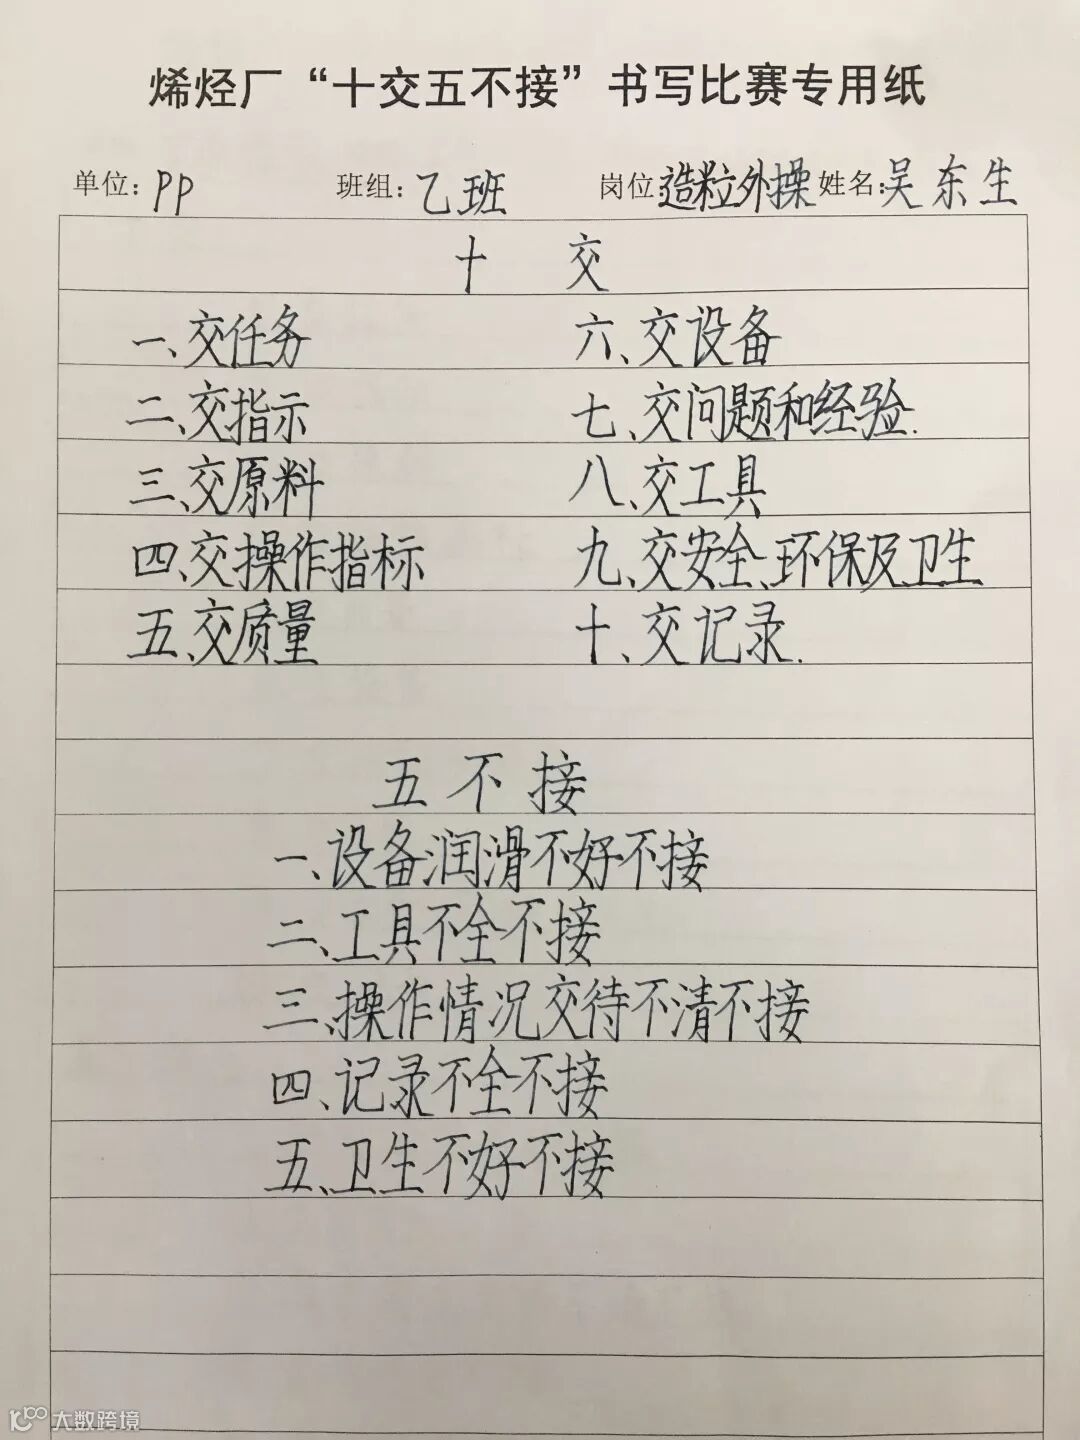 烯烃厂“十交五不接”书写比赛专用纸
单位:PP 班组:乙班 岗位:造粒外操 姓名:吴东生
十 交
一、交任务 六、交设备
二、交指示 七、交问题和经验.
三、交原料 八、交工具
四、交操作指标 九、交安全、环保及卫生
五、交质量 十、交记录.
五不接
一、设备润滑不好不接
二、工具不全不接
三、操作情况交待不清不接
四、记录不全不接
五、卫生不好不接
大数跨境